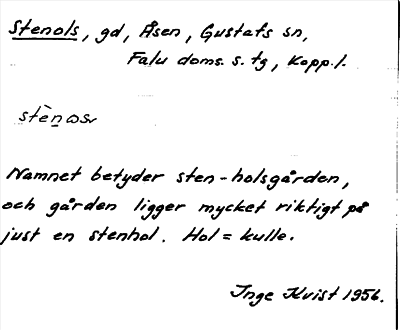 Stenols, gd, Åsen, Gustafs sn,
Falu doms. s. tg, Kopp. l.
stènωsv
Namnet betyder sten-holsgården,
och gården ligger mycket riktigt på
just en stenhol. Hol = kulle.
Inge Kvist 1956.